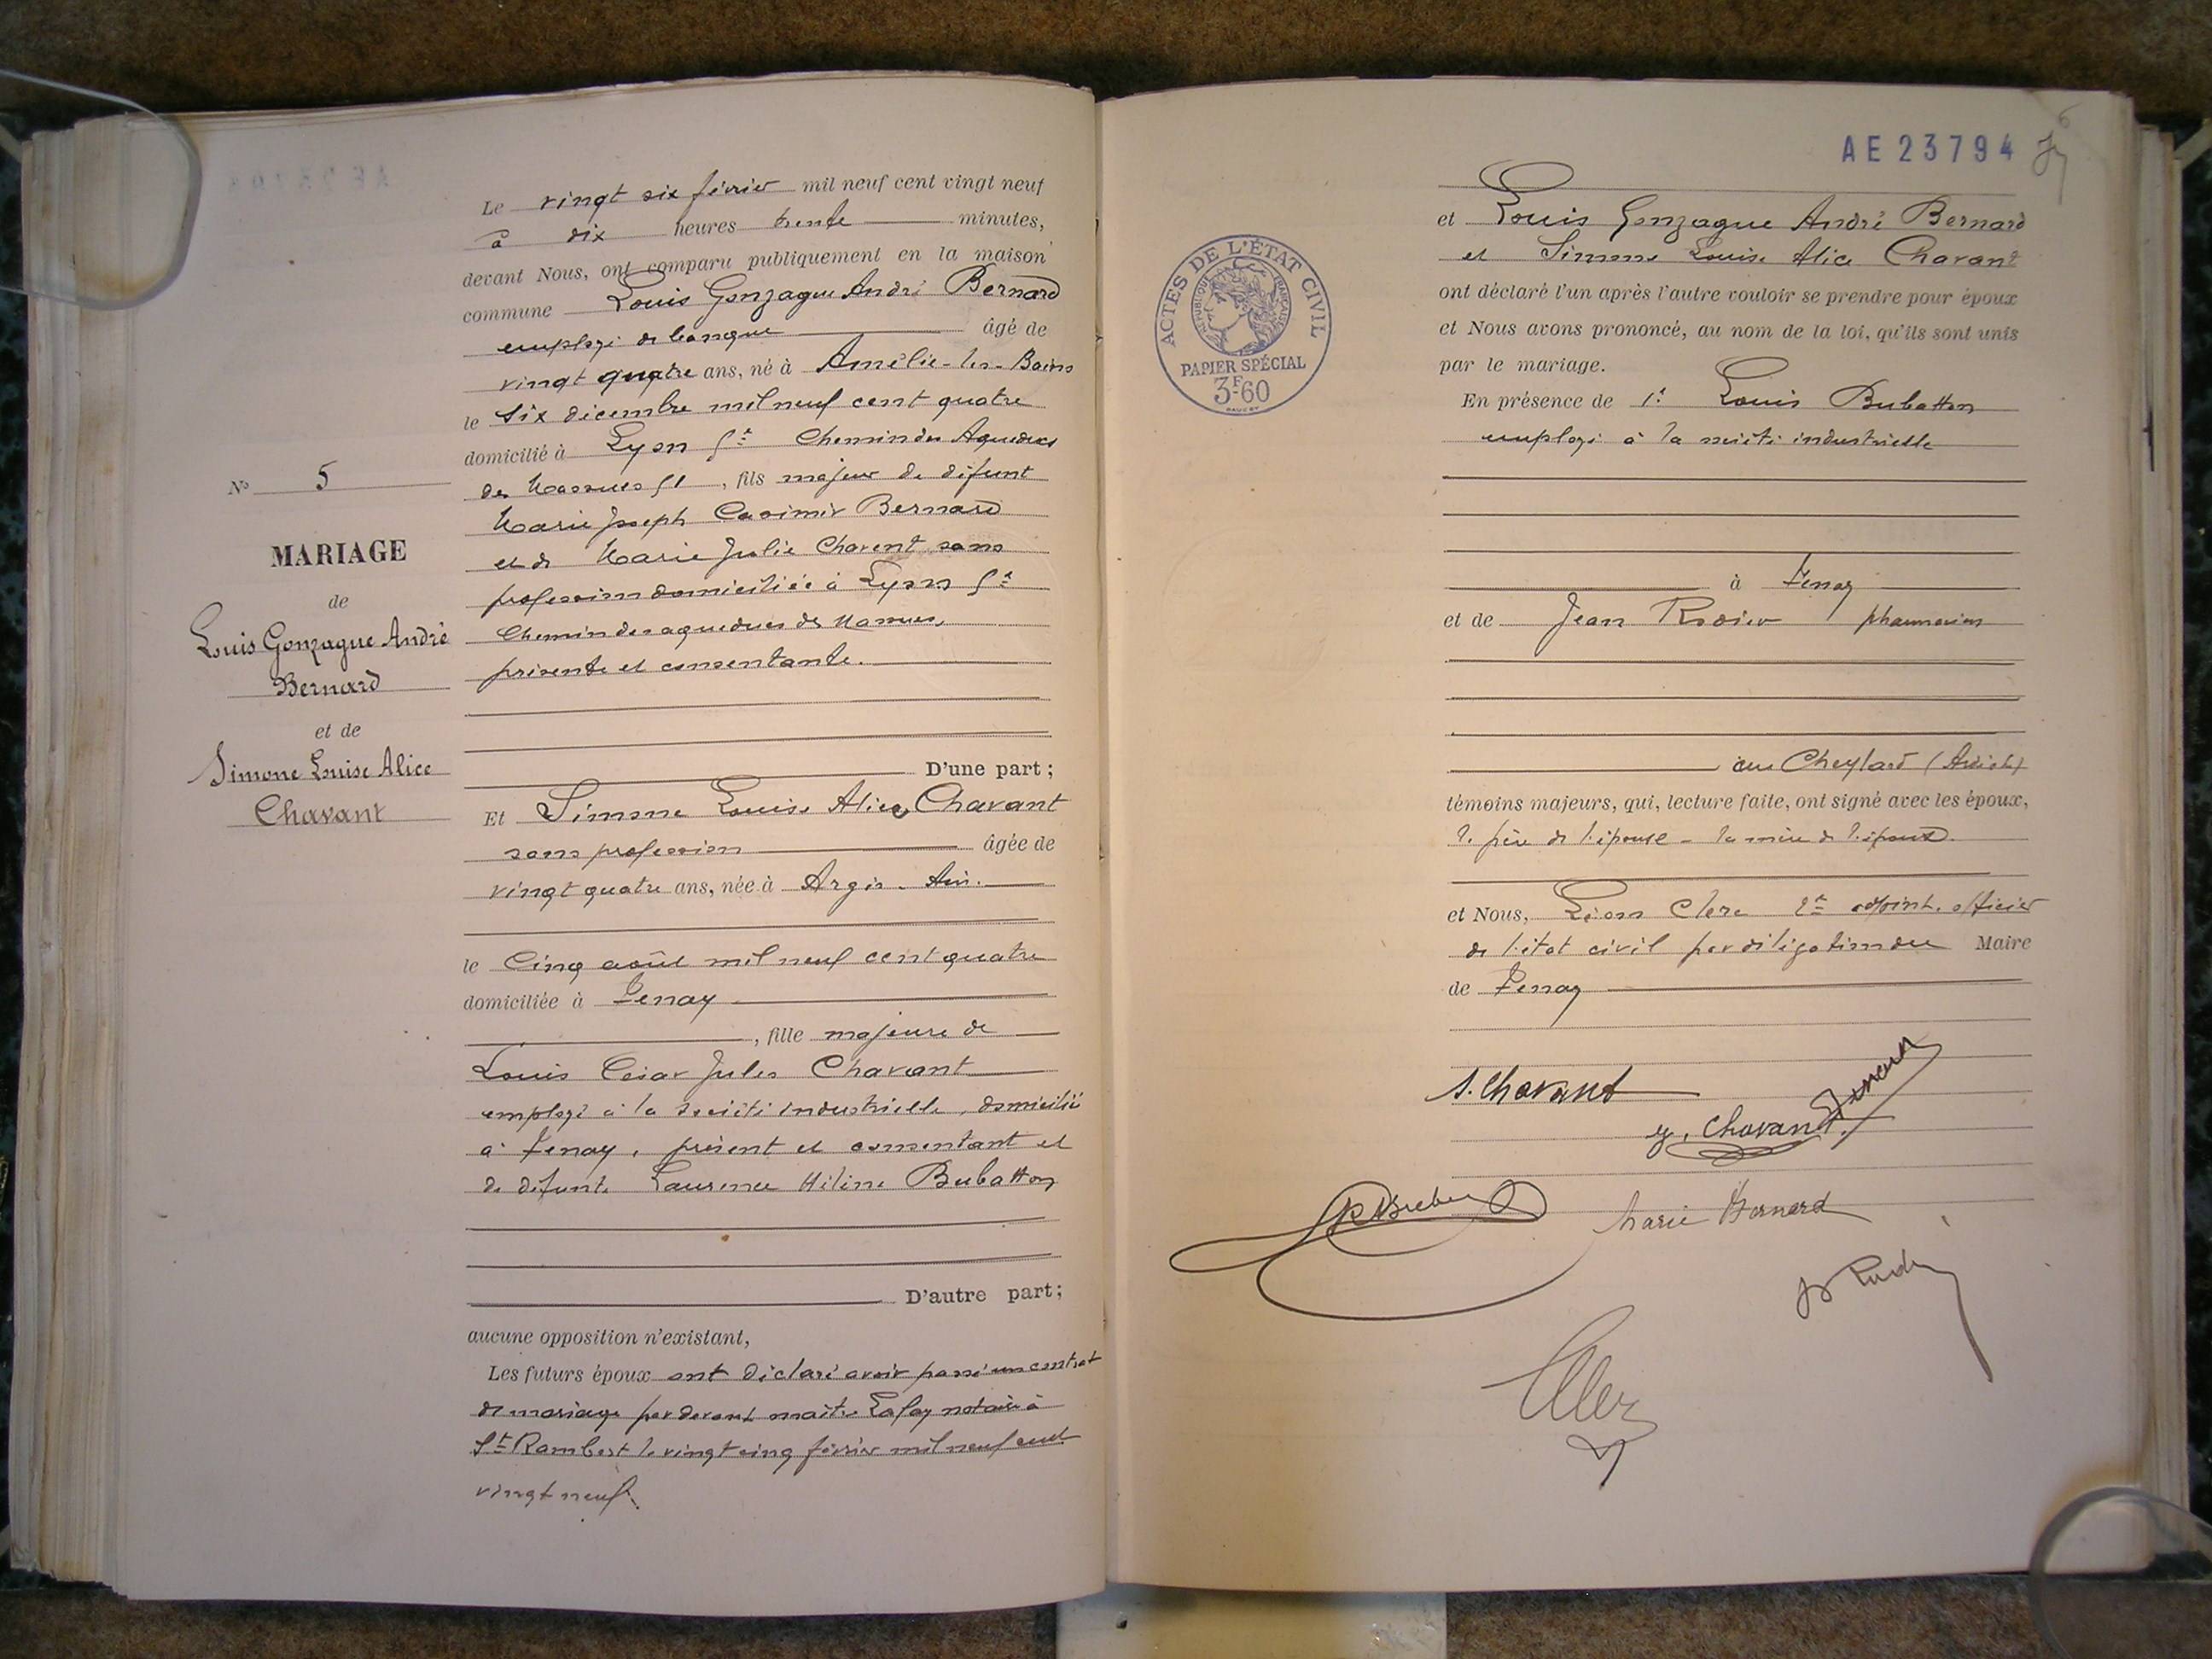 N° 5
MARIAGE
de
Louis Gonzague André
Bernard
et de
Simone Louise Alice
Chavant
Le vingt six février mil neuf cent vingt neuf
à dix heures trente minutes,
devant Nous, ont comparu publiquement en la maison
commune Louis Gonzague André Bernard
employé de banque âgé de
vingt quatre ans, né à Amélie-les-Bains
le six décembre mil neuf cent quatre
domicilié à Lyon 5e Chemin des Aqueducs
des Massues 51, fils majeur de défunt
Marie Joseph Casimir Bernard
et de Marie Julie Chavent sans
profession domiciliée à Lyon 5e
Chemin des aqueducs des Massues,
présente et consentante.
D'une part;
Et Simone Louise Alice Chavant
sans profession âgée de
vingt quatre ans, née à Argis. Ain.
le Cinq août mil neuf cent quatre
domiciliée à Tenay
, fille majeure de
Louis César Jules Chavant
employé à la Société industrielle, domicilié
à Tenay, présent et consentant et
de défunte Laurence Hélène Bubatton
D'autre part;
aucune opposition n'existant,
Les futurs époux ont déclaré avoir passé un contrat
de mariage par devant maître Lafay notaire à
St Rambert le vingt cinq février mil neuf cent
vingt neuf.
AE 23794
ACTES DE L'ÉTAT CIVIL
RÉPUBLIQUE FRANÇAISE
PAPIER SPÉCIAL
3F-60
et Louis Gonzague André Bernard
et Simone Louise Alice Chavant
ont déclaré l'un après l'autre vouloir se prendre pour époux
et Nous avons prononcé, au nom de la loi, qu'ils sont unis
par le mariage.
En présence de 1° Louis Bubatton
employé à la société industrielle
à Tenay
et de Jean Rodier pharmacien
au Cheylard (Ardèche)
témoins majeurs, qui, lecture faite, ont signé avec les époux,
le père de l'épouse - la mère de l'époux.
et Nous, Léon Clerc 2e adjoint. officier
de l'état civil par délégation du Maire
de Tenay
S. Chavant
Chavant
Marie Bernard